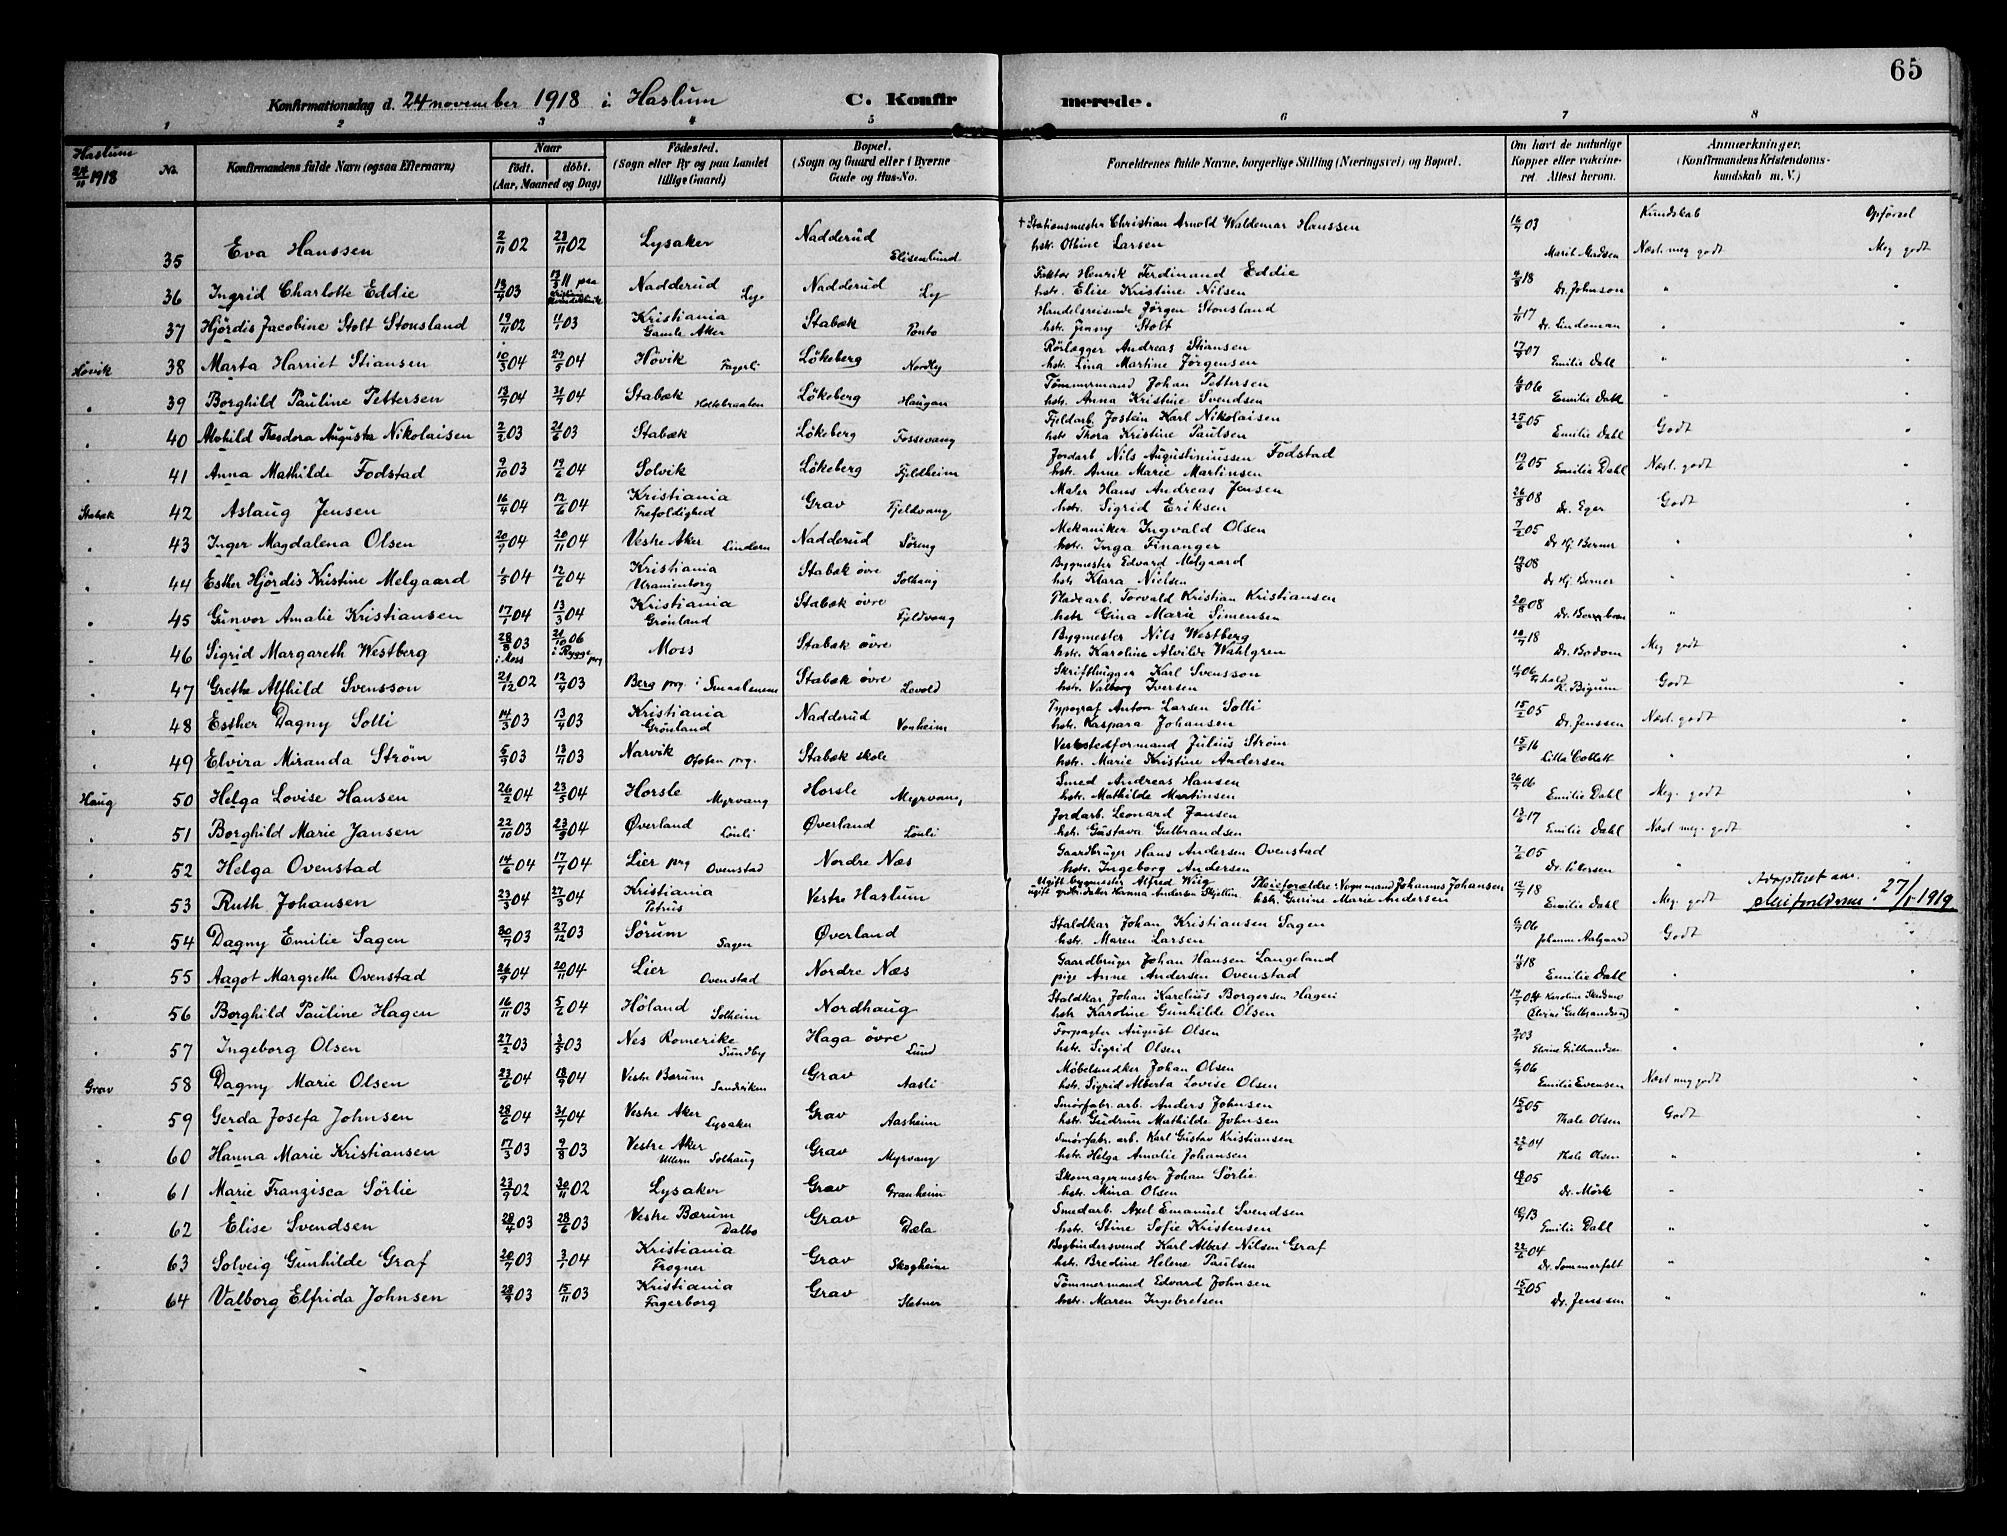 65
Konfirmationsdag d. 24 november 1918 i Haslum C. Konfirmerede.
1 2 3 4 5 6 7 8
Haslum 24/11 1918
No.
Konfirmandens fulde Navn (ogsaa Efternavn)
Naar
født. døbt.
(Aar, Maaned og Dag)
Fødested.
(Sogn eller By og paa Landet tillige Gaard)
Bopæl.
(Sogn og Gaard eller i Byerne Gade og Hus-No.
Forældrenes fulde Navne, borgerlige Stilling (Næringsvei) og Bopæl.
Om havt de naturlige Kopper eller vaccineret. Attest herom.
Anmerkninger.
(Konfirmandens Kristendomskundskab m. V.)
Kundskab Opførsel
35 Eva Hanssen 2/11 02 23/11 02 Lysaker Nadderud Elisenlund † Stationsmester Christian Arnold Waldemar Hanssen hstr. Olbine Larsen 16/7 03 Marit Madsen Næst. meg godt Meg godt
36 Ingrid Charlotte Eddie 13/4 03 13/3 11 paa Nadderud Ly Nadderud Ly Faktor Henrik Ferdinand Eddie hstr. Elise Kristine Nilsen 9/8 18 Dr. Johnson " "
37 Hjördis Jacobine Stolt Stousland 19/11 02 11/1 03 Kristiania Gamle Aker Stabæk Ponto Handelsreisende Jörgen Stousland hstr. Jenny Stolt 1/11 17 Dr. Lindeman " "
Høvik 38 Marta Harriet Stiansen 10/3 04 29/5 04 Hövik Fagerli Lökeberg Nordby Rörlægger Andreas Stiansen hstr. Lina Martine Jörgensen 17/9 07 Emilie Dahl " "
" 39 Borghild Pauline Pettersen 13/7 04 31/7 04 Stabæk Holtebraaten Lökeberg Haugan Tömmermand Johan Pettersen hstr. Anna Kristine Svendsen 6/8 06 Emilie Dahl " "
" 40 Alvhild Theodora Augusta Nikolaisen 2/2 03 21/6 03 Stabæk Lökeberg Fossevang Fjeldarb. Jostein Karl Nikolaisen hstr. Thora Kristine Paulsen 25/6 05 Emilie Dahl Godt "
" 41 Anna Mathilde Fodstad 9/10 03 19/6 04 Solvik Lökeberg Fjeldheim Jordarb. Nils Augustiniussen Fodstad hstr. Anne Marie Martinsen 19/6 05 Emilie Dahl Næst. godt "
Stabæk 42 Aslaug Jensen 16/4 04 12/6 04 Kristiania Trefoldighed Grav Fjeldvang Maler Hans Andreas Jensen hstr. Sigrid Eriksen 26/8 08 Dr. Eger Godt "
" 43 Inger Magdalena Olsen 20/9 04 20/11 04 Vestre Aker Lindern Nadderud Söreng Mekaniker Ingvald Olsen hstr. Inga Finanger 7/2 05 Dr. Hj. Berner " "
" 44 Esther Hjördis Kristine Melgaard 1/5 04 12/6 04 Kristiania Uranienborg Stabæk övre Solhaug Bygmester Edvard Melgaard hstr. Klara Nielsen 19/8 08 Dr. Hj. Berner " "
" 45 Gunvor Amalie Kristiansen 17/1 04 13/3 04 Kristiania Grönland Stabæk övre Fjeldvang Pladearb. Torvald Kristian Kristiansen hstr. Gina Marie Simensen 20/8 08 " "
" 46 Sigrid Margareth Westberg 28/8 03 i Moss 21/10 06 i Rygge prg Moss Stabæk övre Bygmester Nils Westberg hstr. Karoline Alvilde Wahlgren 10/7 18 Dr. Bodom Meg godt "
" 47 Grethe Alfhild Svensson 21/12 02 12/4 03 Berg prg. i Smaalenene Stabæk övre Lovold Skrifthugger Karl Svensson hstr. Valborg Iversen K. Bigum Godt "
" 48 Esther Dagny Solli 14/3 03 13/4 03 Kristiania Grönland Nadderud Vonheim Typograf Anton Larsen Solli hstr. Kaspara Johansen 15/2 05 Dr. Jenssen Næst. godt "
" 49 Elvira Miranda Ström 5/9 03 13/11 03 Narvik Ofoten prg. Stabæk skole Verkstedformand Julius Strøm hstr. Marie Kristine Andersen 15/5 16 Lilla Collett " "
Haug 50 Helga Lovise Hansen 26/2 04 23/5 04 Horsle Myrvang Horsle Myrvang Smed Andreas Hansen hstr. Mathilde Martinsen 26/7 06 Emilie Dahl Meg. godt "
" 51 Borghild Marie Jansen 22/10 03 23/9 04 Øverland Lönli Øverland Lönli Jordarb. Leonard Jansen hstr. Gustava Gulbrandsen 13/6 17 Emilie Dahl Næst meg. godt "
" 52 Helga Ovenstad 14/6 04 17/7 04 Lier prg Ovenstad Nordre Næs Gaardbruger Hans Andersen Ovenstad hstr. Ingeborg Andersen 7/6 05 " "
" 53 Ruth Johansen 23/3 04 27/3 04 Kristiania Petrus Vestre Haslum Ugift bygmester Alfred Wiig ugift Hanna Andersen Pleieforældre: Vognmand Johannes Johansen hstr. Gurine Marie Andersen 12/7 18 Emilie Dahl Meg. godt Adopteret av pleieforældrene 27/1 1919
" 54 Dagny Emilie Sagen 30/7 03 27/12 03 Sörum Sagen Øverland Staldkar Johan Kristiansen Sagen hstr. Maren Larsen 9/7 06 Johanne Aalgaard Godt "
" 55 Aagot Margrethe Ovenstad 26/9 04 20/11 04 Lier Ovenstad Nordre Næs Gaardbruger Johan Hansen Langeland pige Anne Andersen Ovenstad 11/8 18 Emilie Dahl " "
" 56 Borghild Pauline Hagen 16/11 03 5/6 04 Höland Solheim Nordhaug Staldkar Johan Karelius Borgersen Hagen hstr. Karoline Gunhilde Olsen 19/7 04 " "
" 57 Ingeborg Olsen 27/2 03 3/5 03 Nes Romerike Sundby Haga övre Lund Forpagter August Olsen hstr. Sigrid Olsen Elvine Gulbrandsen " "
Grav 58 Dagny Marie Olsen 23/6 04 18/9 04 Vestre Bærum Sandviken Grav Aasli Möbelsnedker Johan Olsen hstr. Sigrid Alberta Lovise Olsen 6/9 06 Emilie Evensen Næst meg godt "
" 59 Gerda Josefa Johnsen 28/6 04 31/7 04 Vestre Aker Lysaker Grav Aasheim Smörfabr. arb. Anders Johnsen hstr. Gudrun Mathilde Johnsen 15/6 05 Thale Olsen Godt "
" 60 Hanna Marie Kristiansen 17/3 03 9/8 03 Vestre Aker Ullern Solhaug Grav Myrvang Smörfabr. arb. Karl Gustav Kristiansen hstr. Helga Amalie Johansen 22/6 04 Thale Olsen " "
" 61 Marie Franzisca Sörlie 23/9 02 30/11 02 Lysaker Grav Granheim Skomagermester Johan Sörlie hstr. Mina Olsen 18/2 05 Dr. Mörk " "
" 62 Elise Svendsen 28/4 03 28/6 03 Vestre Bærum Dalbo Grav Dæla Smedarb. Axel Emanuel Svendsen hstr. Stine Sofie Kristensen 10/7 13 Emilie Dahl " "
" 63 Solveig Gunhilde Graf 20/7 03 3/1 04 Kristiania Frogner Grav Skogheim Bogbindersvend Karl Albert Nilsen Graf hstr. Bredine Helene Paulsen 22/6 04 Dr. Sommerfelt " "
" 64 Valborg Elfrida Johnsen 28/9 03 15/11 03 Kristiania Fagerborg Grav Sletner Tömmermand Edvard Johnsen hstr. Maren Ingebretsen 15/2 05 Dr. Jenssen " "